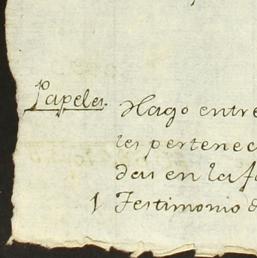 Papeles. Hago entre
les pertenec
das en la f
1 Testimonio d